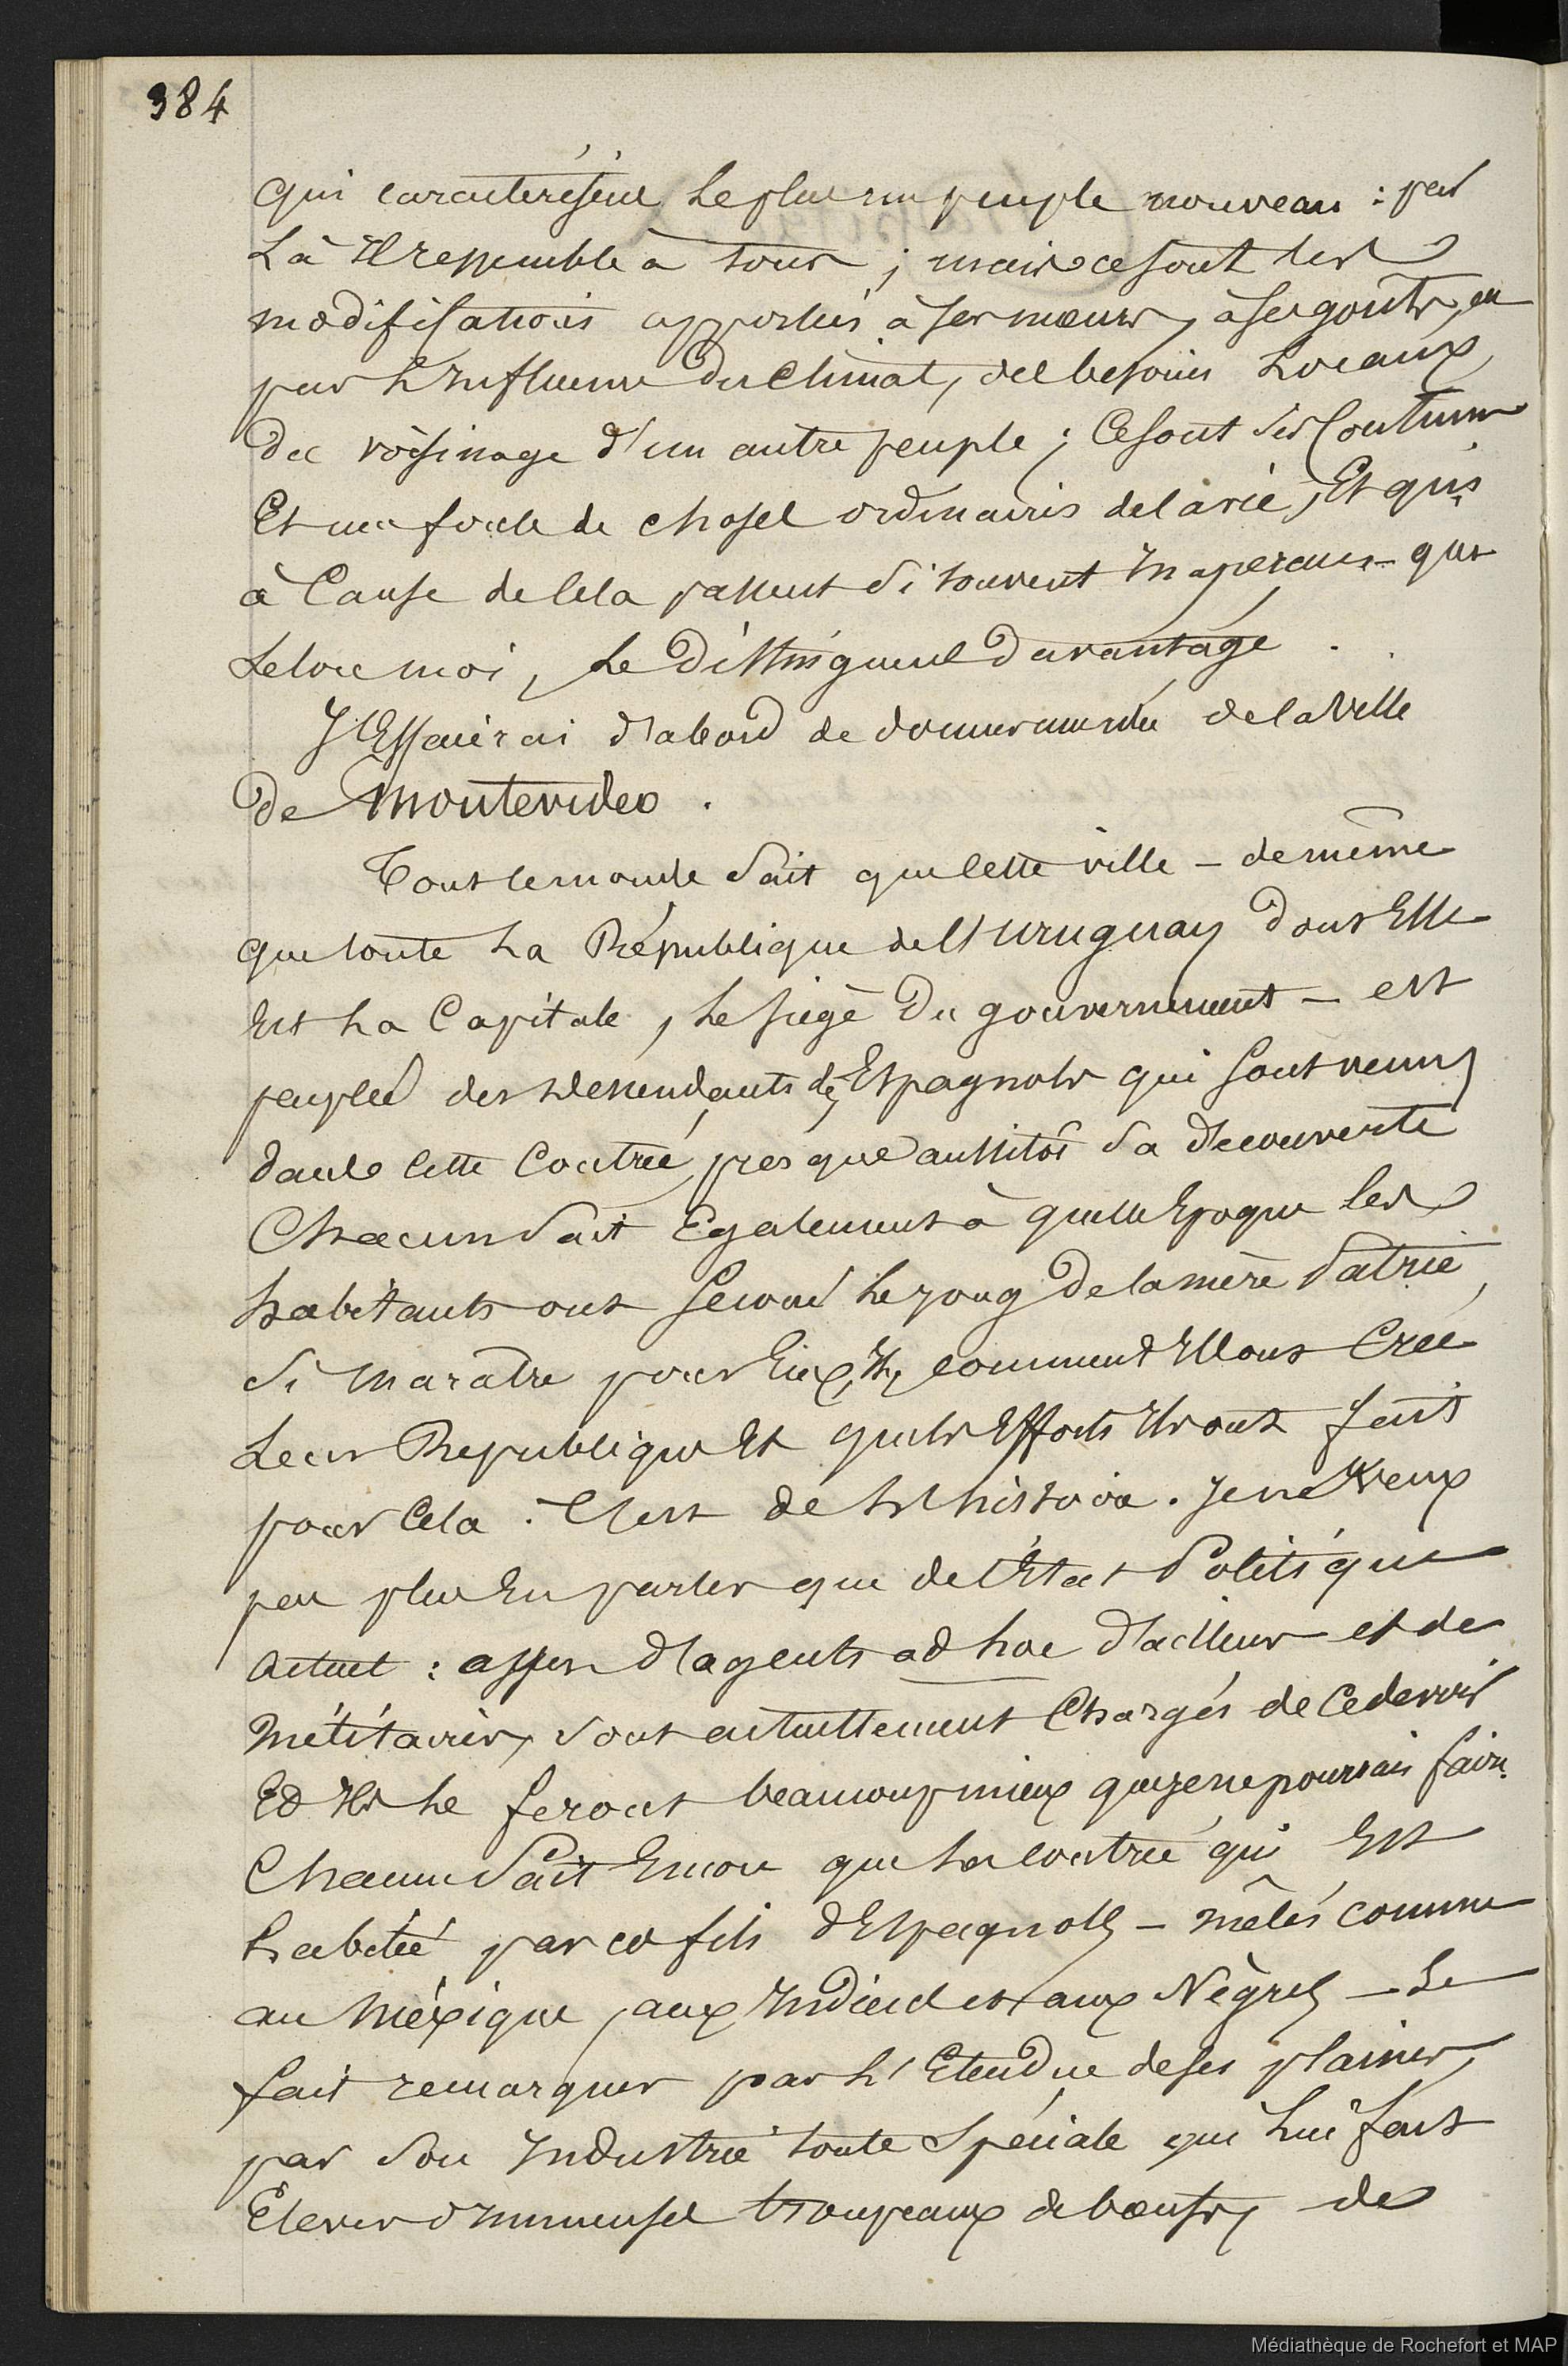 384
qui caractérisent le plus un peuple nouveau : par
Là Il ressemble à tous ; mais ce sont les
modifications apportées à ses mœurs, à ses goûts, ou
par l'Influence du Climat, des besoins Locaux,
du voisinage d'un autre peuple ; Ce sont ses Coutumes
Et une foule de choses ordinaires de la vie, Et qui,
à Cause de Cela passent si souvent Inaperçues - qui
selon moi, le distinguent davantage .
J'Essaierai d'abord de donner une idée de la Ville
de Montevideo .
Tout le monde sait que Cette ville - de même
que toute la République de l'Uruguay dont Elle
Est la Capitale, le siège du gouvernement - est
peuplée des descendants des Espagnols qui sont venus
dans Cette Contrée, presque aussitôt sa découverte
Chacun sait Egalement à quelle Epoque les
habitants ont secoué le joug de la mère Patrie,
si marâtre pour Eux, comment Ils ont Créé
Leur Republique Et quels Efforts Ils ont faits
pour Cela . C'est de l'histoire . Je ne veux
pas plus En parler que de l'Etat Politique
Actuel : assez d'agents ad hoc d'ailleurs et de
Militaires, sont actuellement Chargés de Ce devoir
Et Ils le feront beaucoup mieux que je ne pourrais faire.
Chacun Sait Encore que la contrée qui Est
habitée par ces fils d'Espagnols - mêlés comme
au Méxique, aux Indiens et aux Nègres - se
fait remarquer par l'Etendue de ses plaines,
par son Industrie toute spéciale qui lui fait
Elever d'Immenses troupeaux de bœufs, de
Médiathèque de Rochefort et MAP